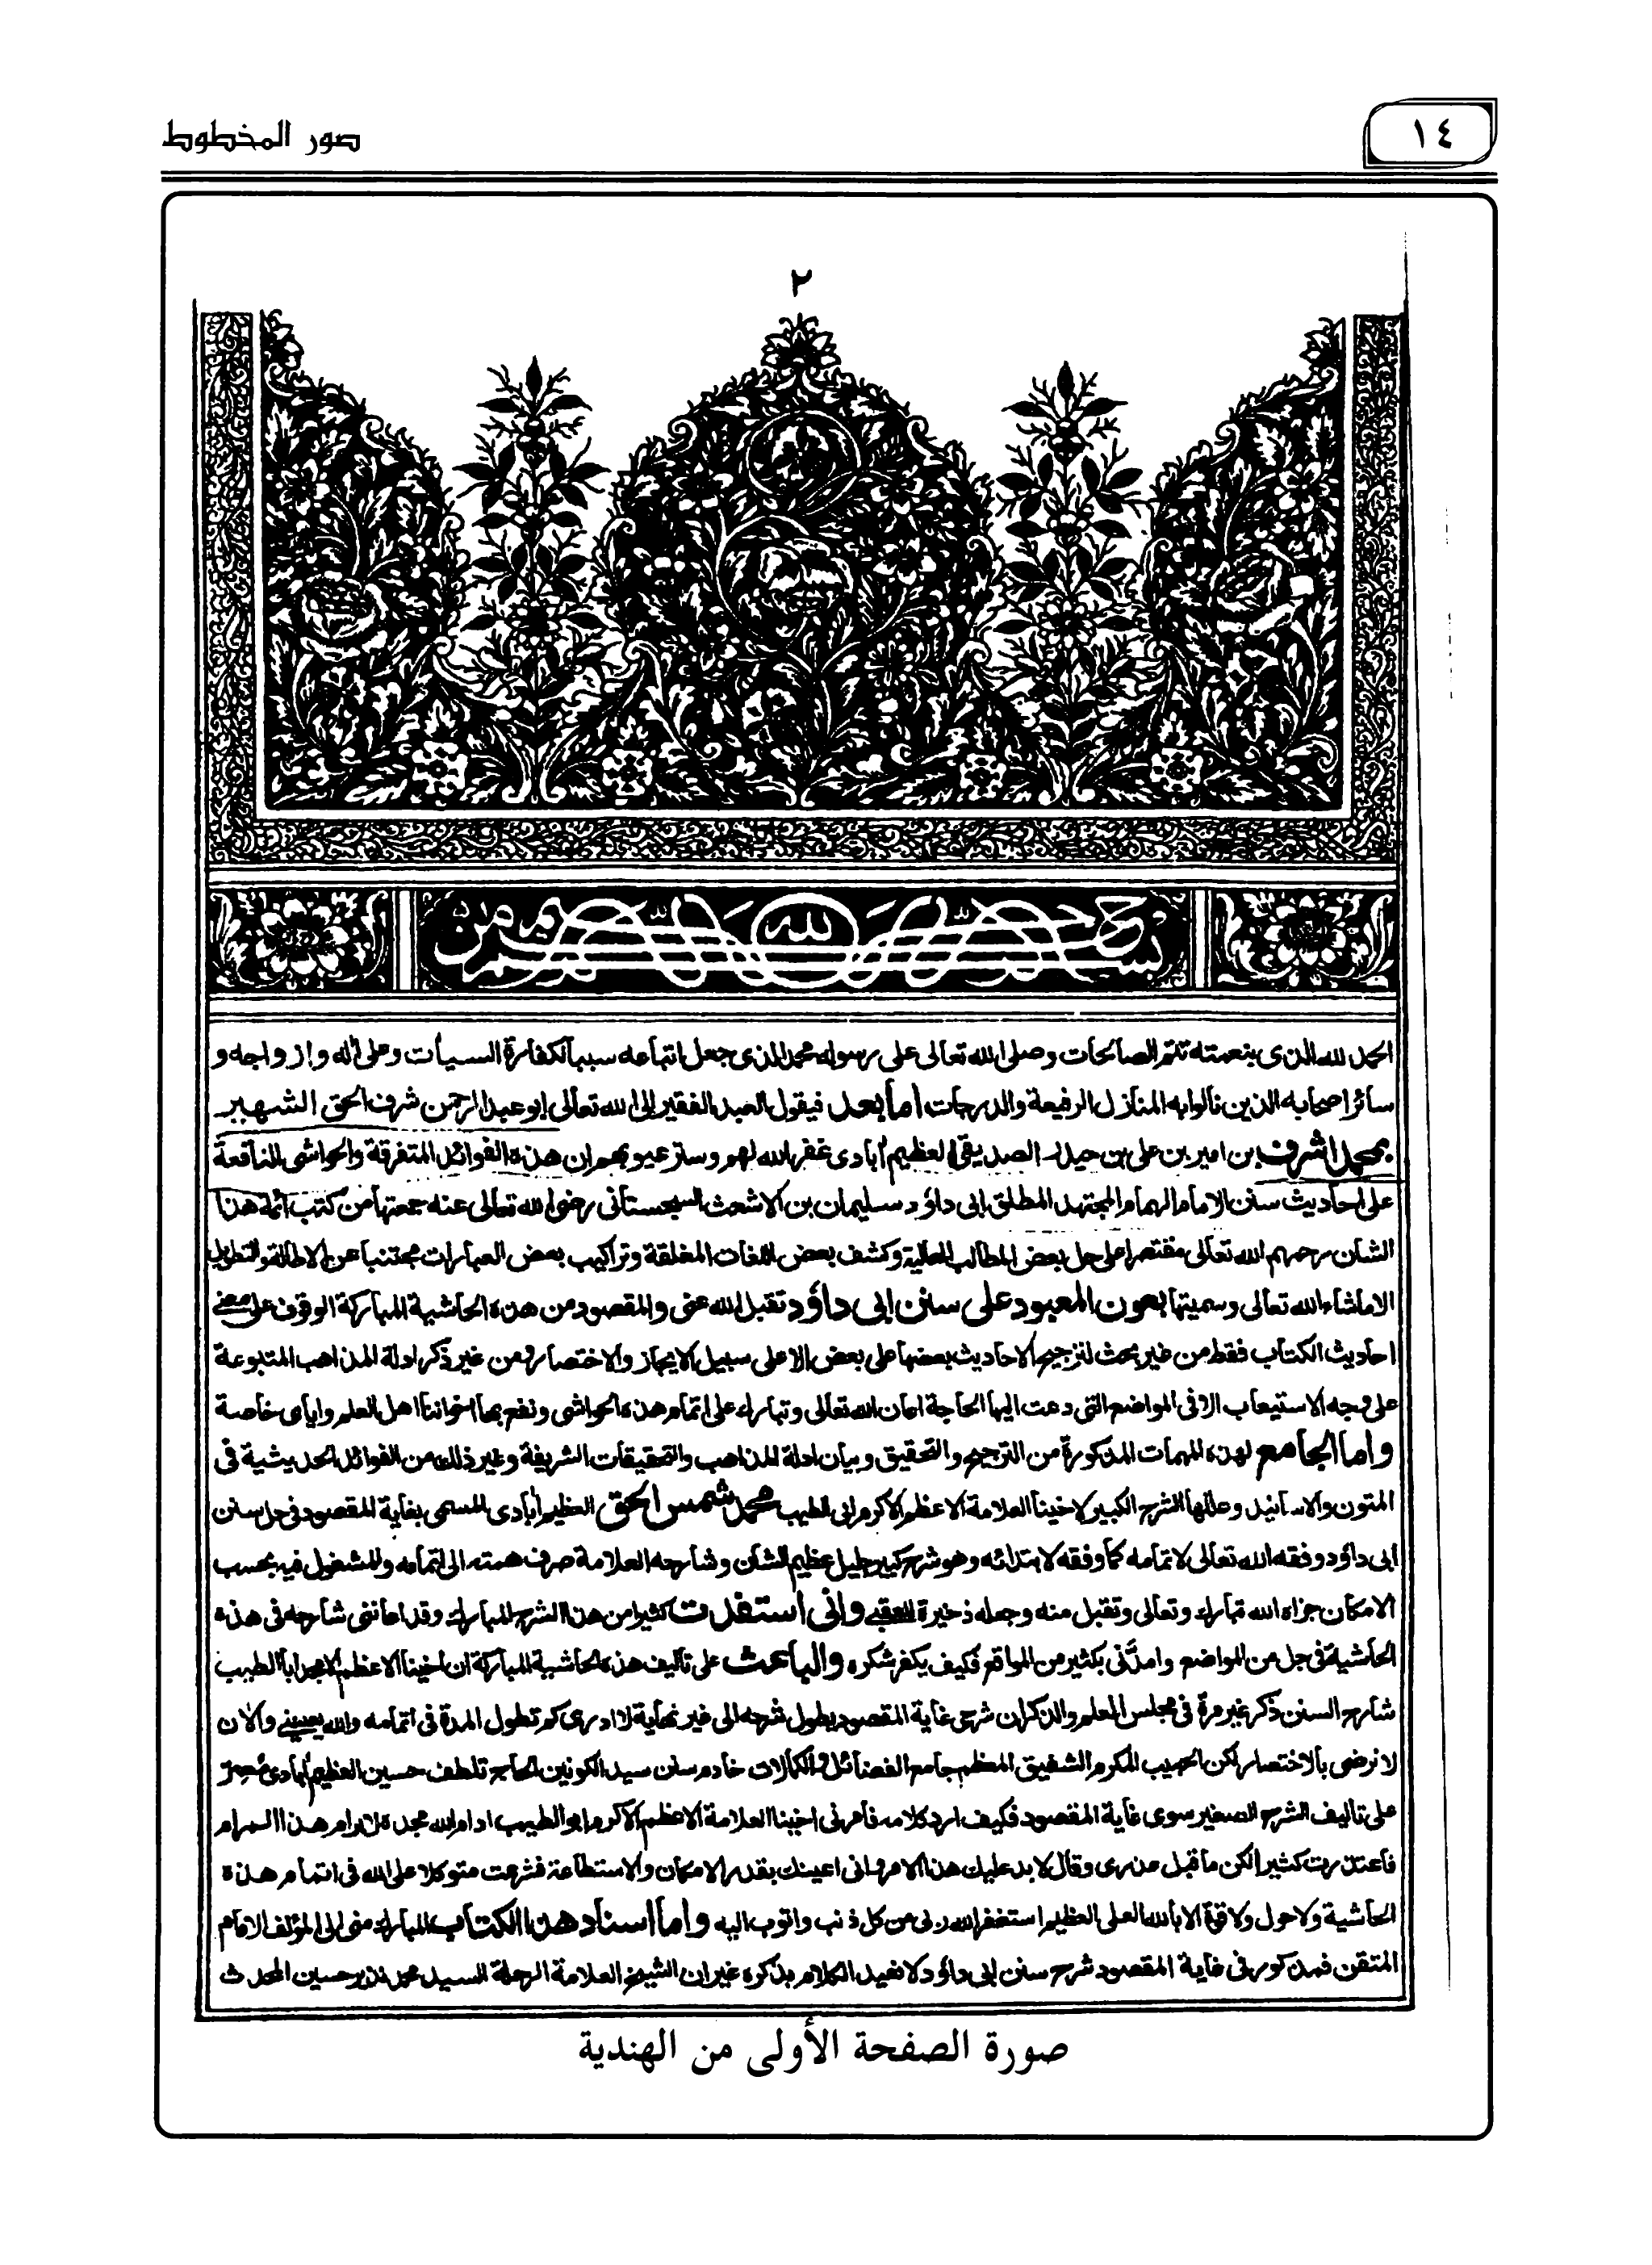 ١٤
صور المخطوط
٢
بسم الله الرحمن الرحيم
الحمد لله الذی بنعمته تتم الصالحات وصلی الله تعالی علی رسوله محمد الذی جعل اتباعه سببا لکفارة السیأت وعلی أله وازواجه و
سائر اصحابه الذین نالوا به المنازل الرفیعة والدرجات اما بعد فیقول العبد الفقیر الی الله تعالی ابو عبد الرحمن شرف الحق الشهیر
بمحمد اشرف بن امیر بن علی بن حیدر الصدیقی العظیم أبادی غفر الله لهم وستر عیوبهم ان هذه الفوائد المتفرقة والحواشی النافعة
علی احادیث سنن الامام الهمام المجتهد المطلق ابی داؤد سلیمان بن الاشعث السجستانی رضی الله تعالی عنه جمعتها من کتب ائمة هذا
الشان رحمهم الله تعالی مقتصرا علی حل بعض المطالب العالیة وکشف بعض اللغات المغلقة وتراکیب بعض العبارات مجتنبا عن الاطالة والتطویل
الا ماشاء الله تعالی وسمیتها بعون المعبود علی سنن ابی داؤد تقبل الله عنی والمقصود من هذه الحاشیة المبارکة الوقوف علی معنی
احادیث الکتاب فقط من غیر بحث لترجیح الاحادیث بعضها علی بعض الا علی سبیل الایجاز والاختصار ومن غیر ذکر ادلة المذاهب المتبوعة
علی وجه الاستیعاب الا فی المواضع التی دعت الیها الحاجة اعان الله تعالی وتبارک علی اتمام هذه الحواشی ونفع بها اخواننا اهل العلم وایای خاصة
واما الجامع لهذه المهمات المذکورة من الترجیح والتحقیق وبیان ادلة المذاهب والتحقیقات الشریفة وغیر ذلک من الفوائد الحدیثیة فی
المتون والاسانید وعللها الشرح الکبیر لاخینا العلامة الاعظم الاکرم ابی الطیب محمد شمس الحق العظیم أبادی المسمی بغایة المقصود فی حل سنن
ابی داؤد وفقه الله تعالی لاتمامه کما وفقه لابتدائه وهو شرح کبیر جلیل عظیم الشان وشارحه العلامة صرف همته الی اتمامه والمشغول فیه بحسب
الامکان جزاه الله تبارک وتعالی وتقبل منه وجعله ذخیرة للعقبی وانی استفدت کثیرا من هذا الشرح المبارک وقد اعاننی شارحه فی هذه
الحاشیة فی جل من المواضع وامدنی بکثیر من المواقع فکیف یکفر شکره والباعث علی تألیف هذه الحاشیة المبارکة ان اخینا الاعظم الامجد ابا الطیب
شارح السنن ذکر غیر مرة فی مجلس العلم والذکر ان شرحی غایة المقصود یطول شرحه الی غیر نهایة لا ادری کم تطول المدة فی اتمامه والله یعیننی والان
لا نرضی بالاختصار لکن الحبیب المکرم الشفیق المعظم جامع الفضائل والکمالات خادم سنن سید الکونین الحاج تلطف حسین العظیم أبادی مصر
علی تالیف الشرح الصغیر سوی غایة المقصود فکیف ارد کلامه فامرنی اخینا العلامة الاعظم الاکرم ابو الطیب ادام الله مجده لابرام هذا المرام
فاعتذرت کثیرا لکن ما قبل عذری وقال لا بد علیک هذا الامر وانی اعینک بقدر الامکان والاستطاعة فشرعت متوکلا علی الله فی اتمام هذه
الحاشیة ولا حول ولا قوة الا بالله العلی العظیم استغفر الله ربی من کل ذنب واتوب الیه واما اسناد هذا الکتاب المبارک منی الی المؤلف الامام
المتقن فمذکور فی غایة المقصود شرح سنن ابی داؤد لا نعید الکلام بذکره غیر ان الشیخ العلامة الرحلة السید محمد نذیر حسین المحدث
صورة الصفحة الأولى من الهندية